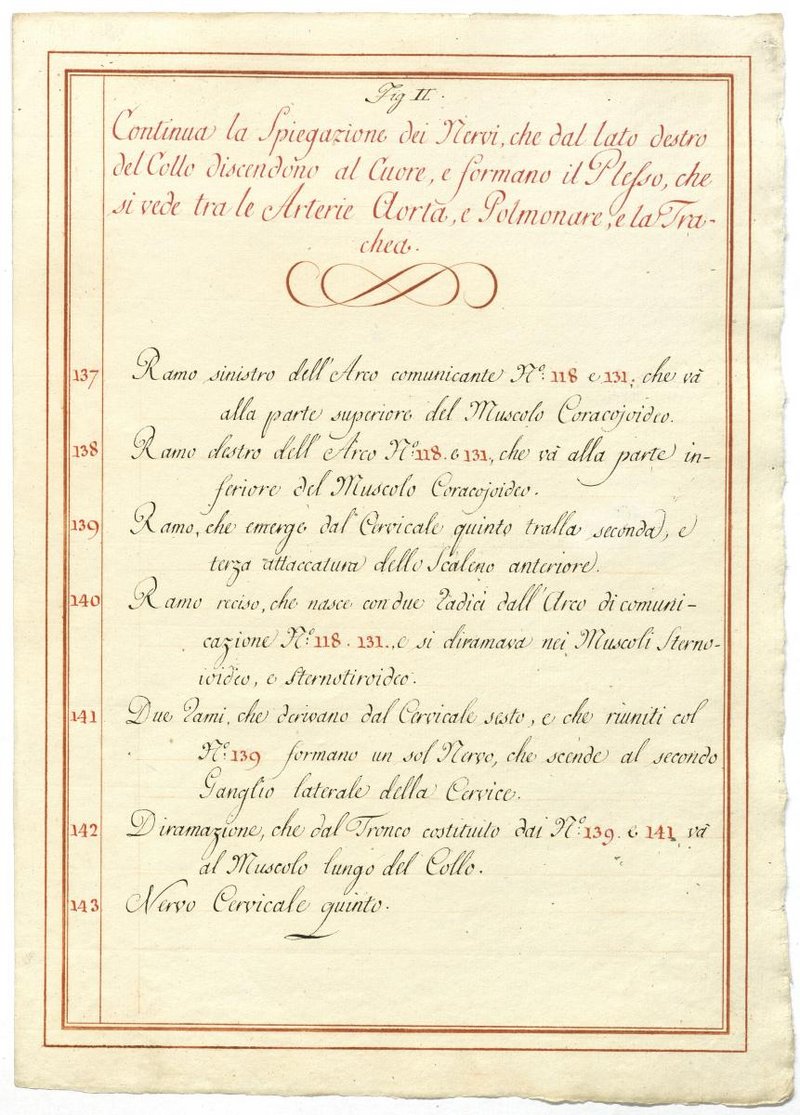 Fig II.
Continua la Spiegazione dei Nervi, che dal lato destro
del Collo discendono al Cuore, e formano il Plesso, che
si vede tra le Arterie Aorta, e Polmonare, e la Tra-
chea.
137 Ramo sinistro dell'Arco comunicante N.º 118 e 131, che và
alla parte superiore del Muscolo Coracojoideo.
138 Ramo destro dell'Arco N.º 118. e 131, che và alla parte in-
feriore del Muscolo Coracojoideo.
139 Ramo, che emerge dal Cervicale quinto tralla seconda, e
terza attaccatura dello Scaleno anteriore.
140 Ramo reciso, che nasce con due radici dall'Arco di comuni-
cazione N.º 118. 131., e si diramava nei Muscoli Sterno-
ioideo, e Sternotiroideo.
141 Due rami, che derivano dal Cervicale sesto, e che riuniti col
N.º 139 formano un sol Nervo, che scende al secondo
Ganglio laterale della Cervice.
142 Diramazione, che dal Tronco costituito dai N.º 139. e 141, và
al Muscolo lungo del Collo.
143 Nervo Cervicale quinto.